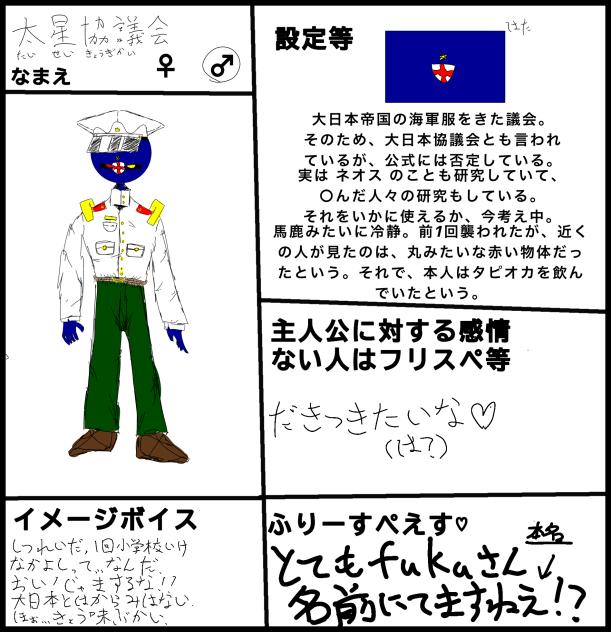 太星協議会
たい せい きょうぎかい
なまえ ♀ ♂
設定等
はた
大日本帝国の海軍服をきた議会。
そのため、大日本協議会とも言われ
ているが、公式には否定している。
実は ネオス のことも研究していて、
〇んだ人々の研究もしている。
それをいかに使えるか、今考え中。
馬鹿みたいに冷静。前1回襲われたが、近く
の人が見たのは、丸みたいな赤い物体だっ
たという。それで、本人はタピオカを飲ん
でいたという。
主人公に対する感情
ない人はフリスペ等
だきつきたいな♡
(は?)
イメージボイス
しつれいだ,1回小学校いけ
なかよしって..なんだ.
おい!じゃますするな!!
大日本とはからみはない.
ほぉ...きょう味ぶかい.
ふりーすぺえす♡
本名
とてもfukuさん↓
名前にてますねえ!?